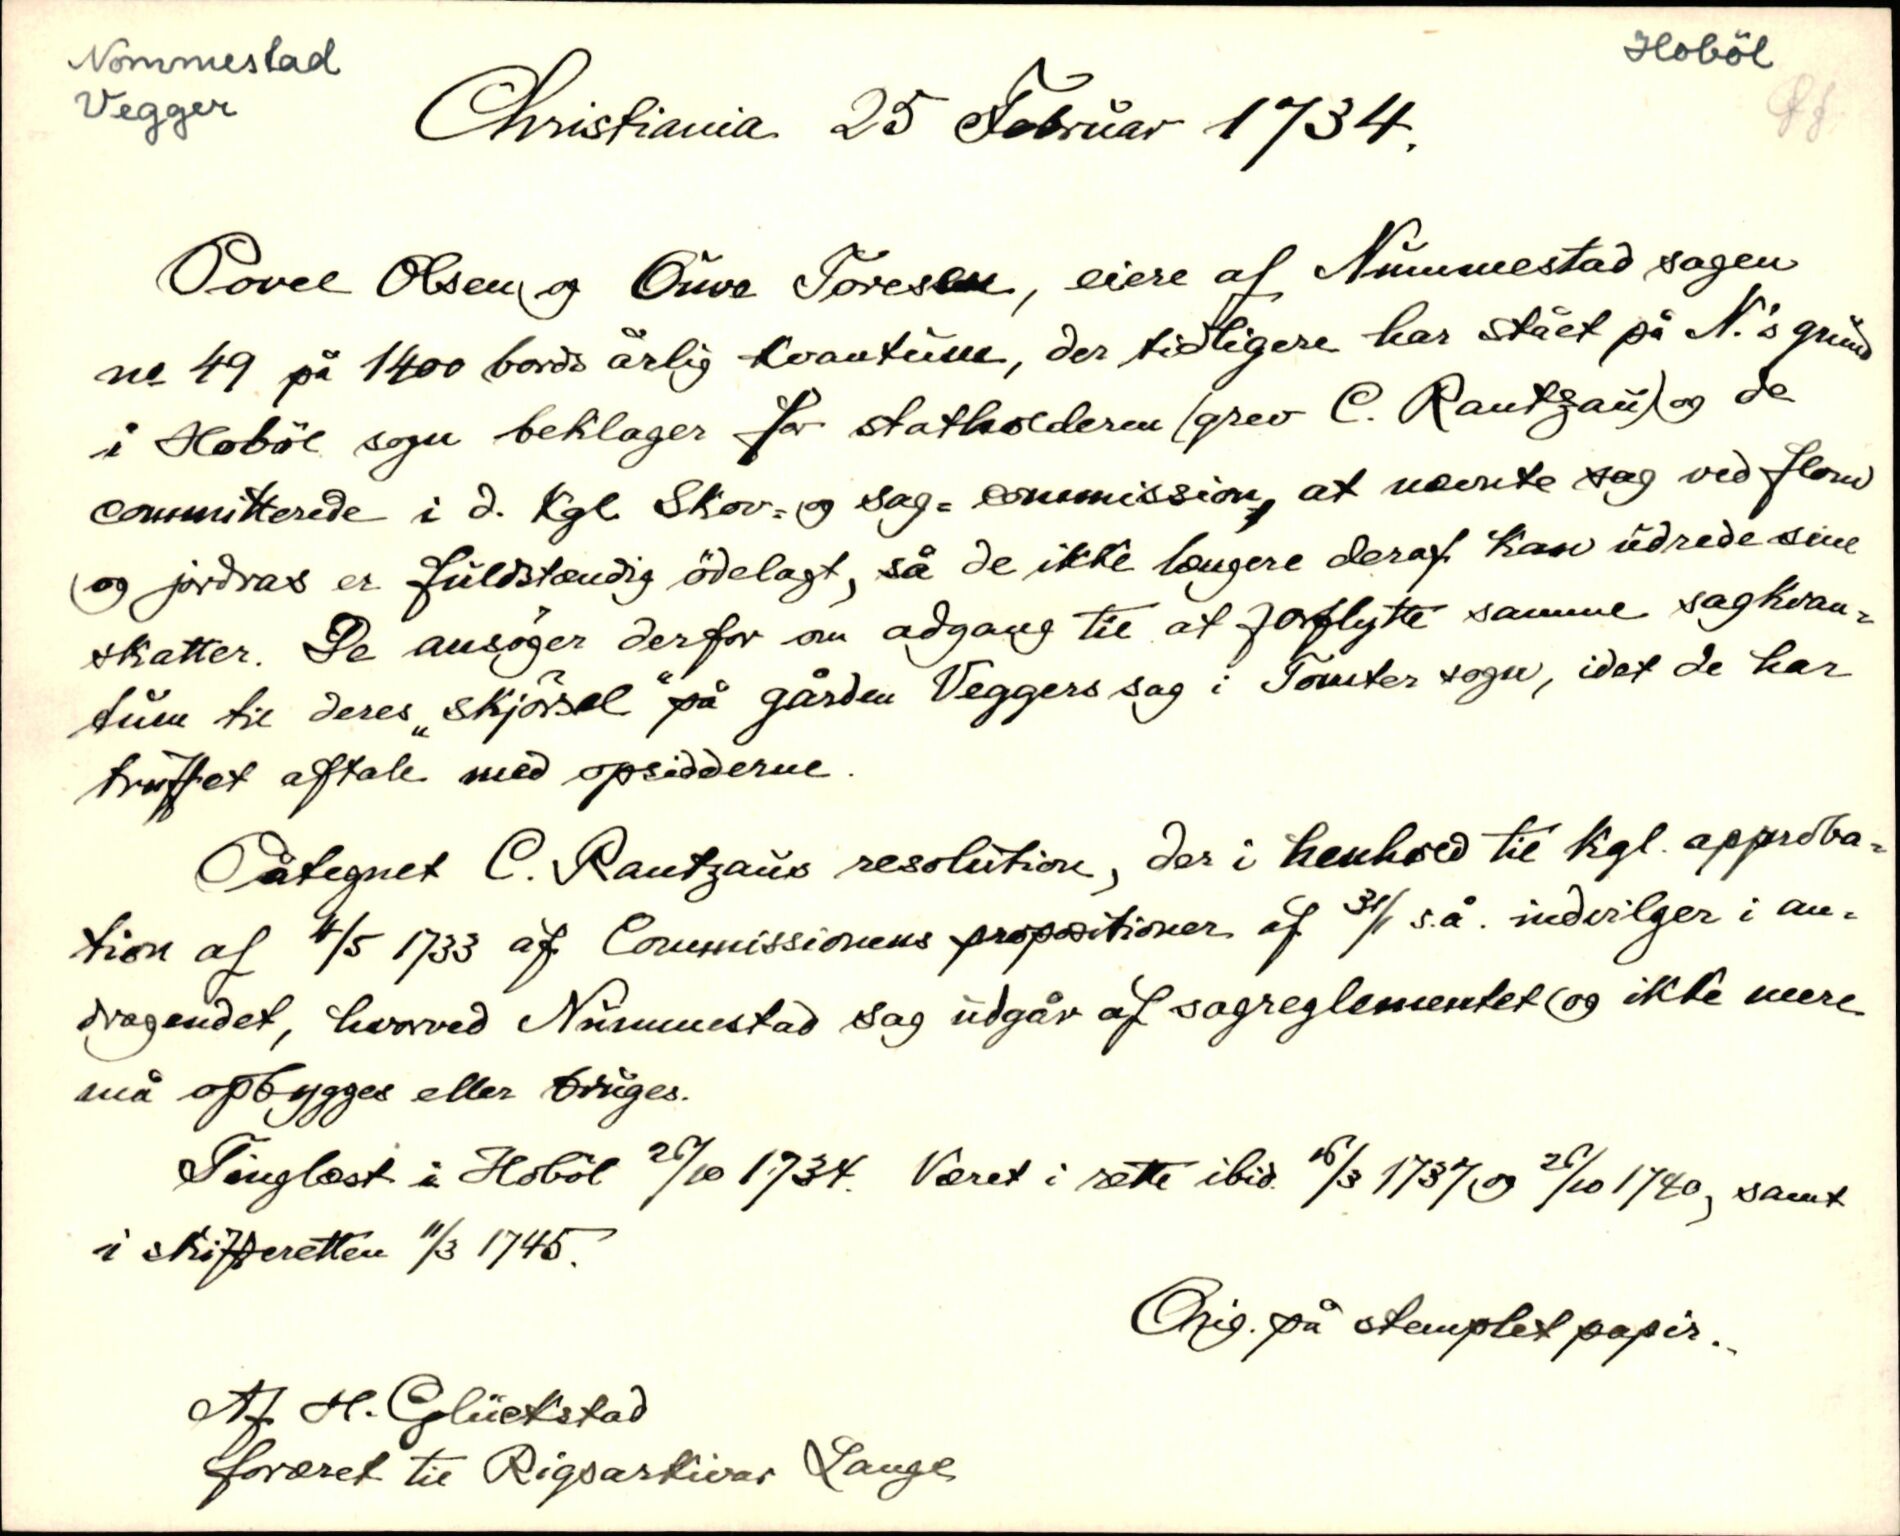 Nommestad
Vegger
Hoböl
Christiania 25 Februar 1734.
Povel Olsen og Ouve Toresen, eiere af Nummestad sagen
no 49 på 1400 bords årlig kvantum, der tidligere har stået på N.'s grund
i Hoböl sogn beklager for statholderen (grev C. Rantzau) og de
committerede i d. Kgl. Skov- og sag-commission, at nævnte sag ved flom
og jordras er fuldstændig ödelagt, så de ikke længere deraf kan udrede sine
skatter. De ansöger derfor om adgang til at forflytte samme sagkvan-
tum til deres "skjörsel" på gården Veggers sag i Tomter sogn, idet de har
truffet aftale med opsidderne.
Påtegnet C. Rantzaus resolution, der i henhold til kgl. approba-
tion af 4/5 1733 af Commissionens propositioner af 31/1 s.å. indvilger i an-
dragendet, hvorved Nummestad sag udgår af sagreglementet og ikke mere
må opbygges eller bruges.
Tinglæst i Hoböl 26/10 1734. Været i rette ibid. 16/3 1737 og 26/10 1740, samt
i skifteretten 11/3 1745.
Orig. på stemplet papir.
Af H. Glückstad
foræret til Rigsarkivar Lange